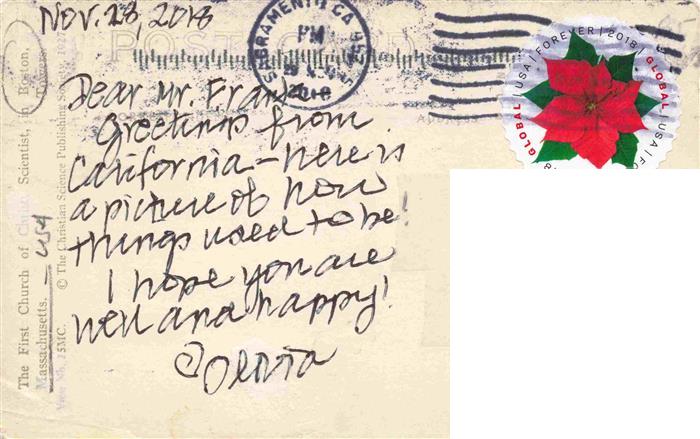 Nov. 28, 2018
POST CARD
SACRAMENTO CA 957
PM
2018
GLOBAL | USA | FOREVER | 2018 | GLOBAL | USA |
Dear Mr. Frank
Greetings from
California - here is
a picture of how
things used to be!
I hope you are
well and happy!
Olivia
The First Church of Christ, Scientist, in Boston,
Massachusetts. - USA
© The Christian Science Publishing Society
View No. 15MC.